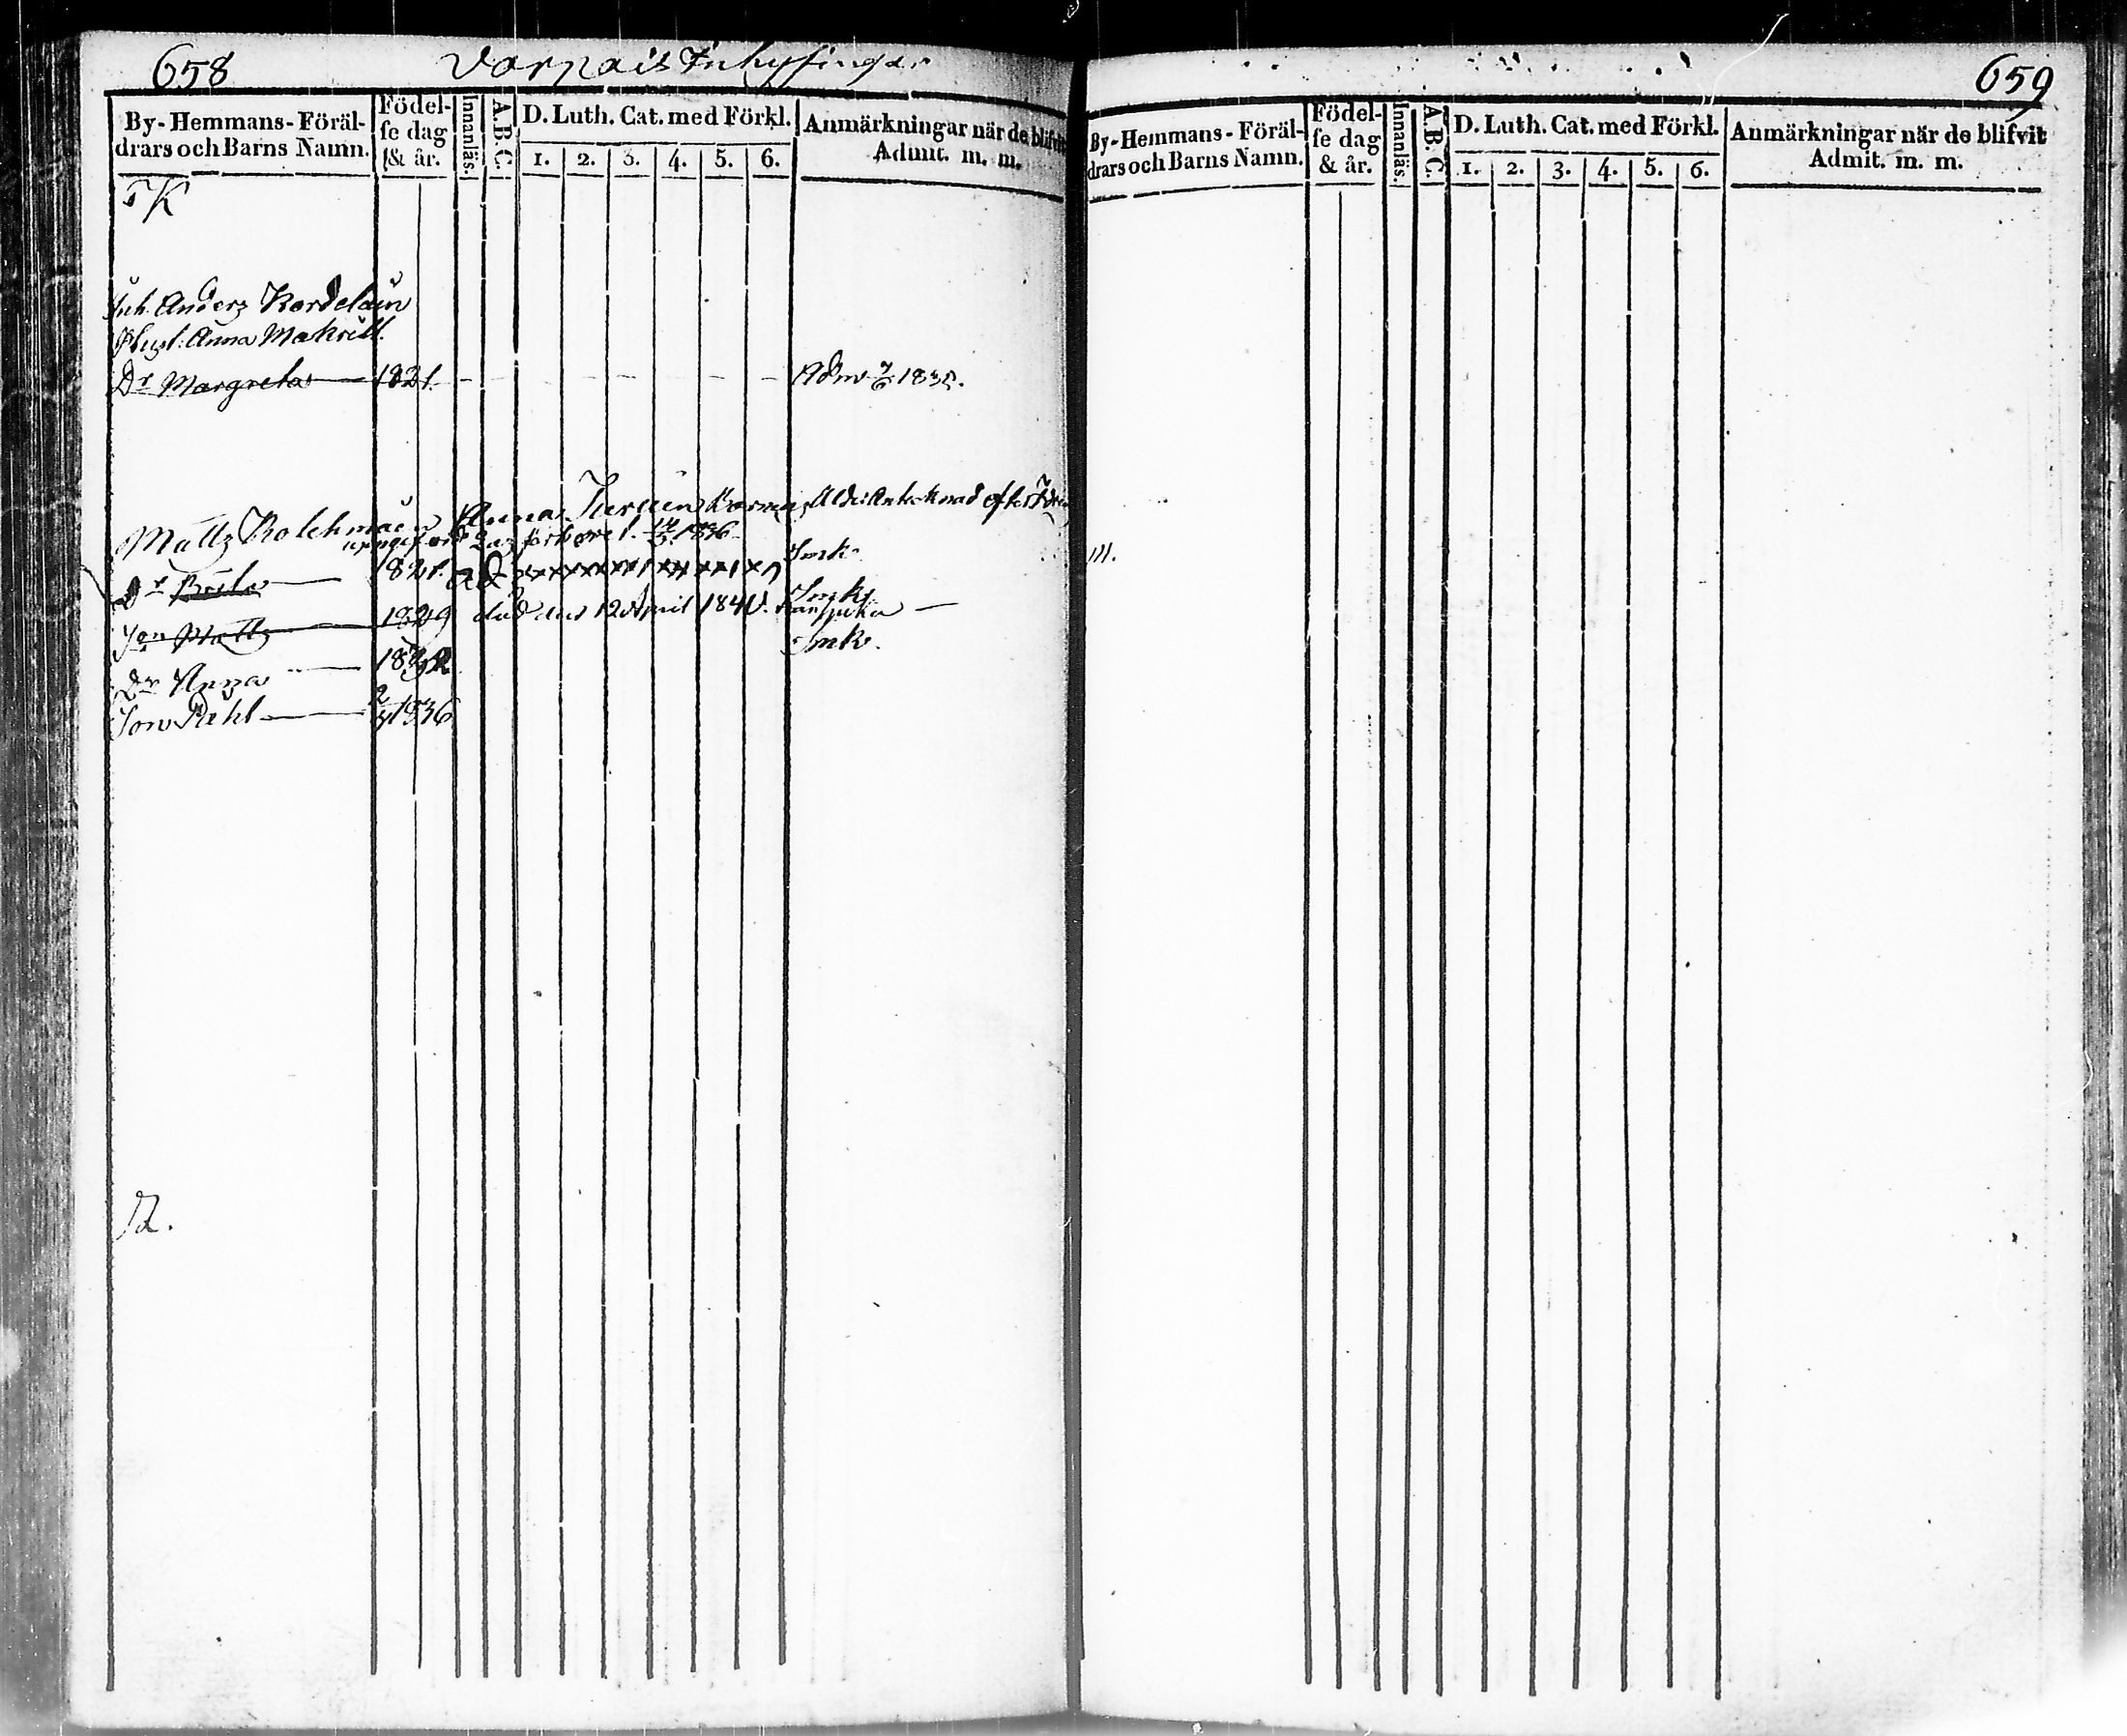 658
Varpais Inhysingar
By-Hemmans-Föräl-
drars och Barns Namn.
Födel-
se dag
& år.
Innanläs.
A.B.C.
D. Luth. Cat. med Förkl.
1. 2. 3. 4. 5. 6.
Anmärkningar när de blifvit
Admit. m. m.
Inh. Anders Kordelain
Hust: Anna Makvill.
Dr Margreta 1821. Adm 7/6 1835.
Mattz Kolehmain Anna Barns Ålder Antecknad efter
1836
Dr 1821. Ad Smk
Son Mattz 1829 död den 12 April 1840.
Dr Anna 1832 Smk.
Son Påhl 1836
12.
659
By-Hemmans-Föräl-
drars och Barns Namn.
Födel-
se dag
& år.
Innanläs.
A.B.C.
D. Luth. Cat. med Förkl.
1. 2. 3. 4. 5. 6.
Anmärkningar när de blifvit
Admit. m. m.